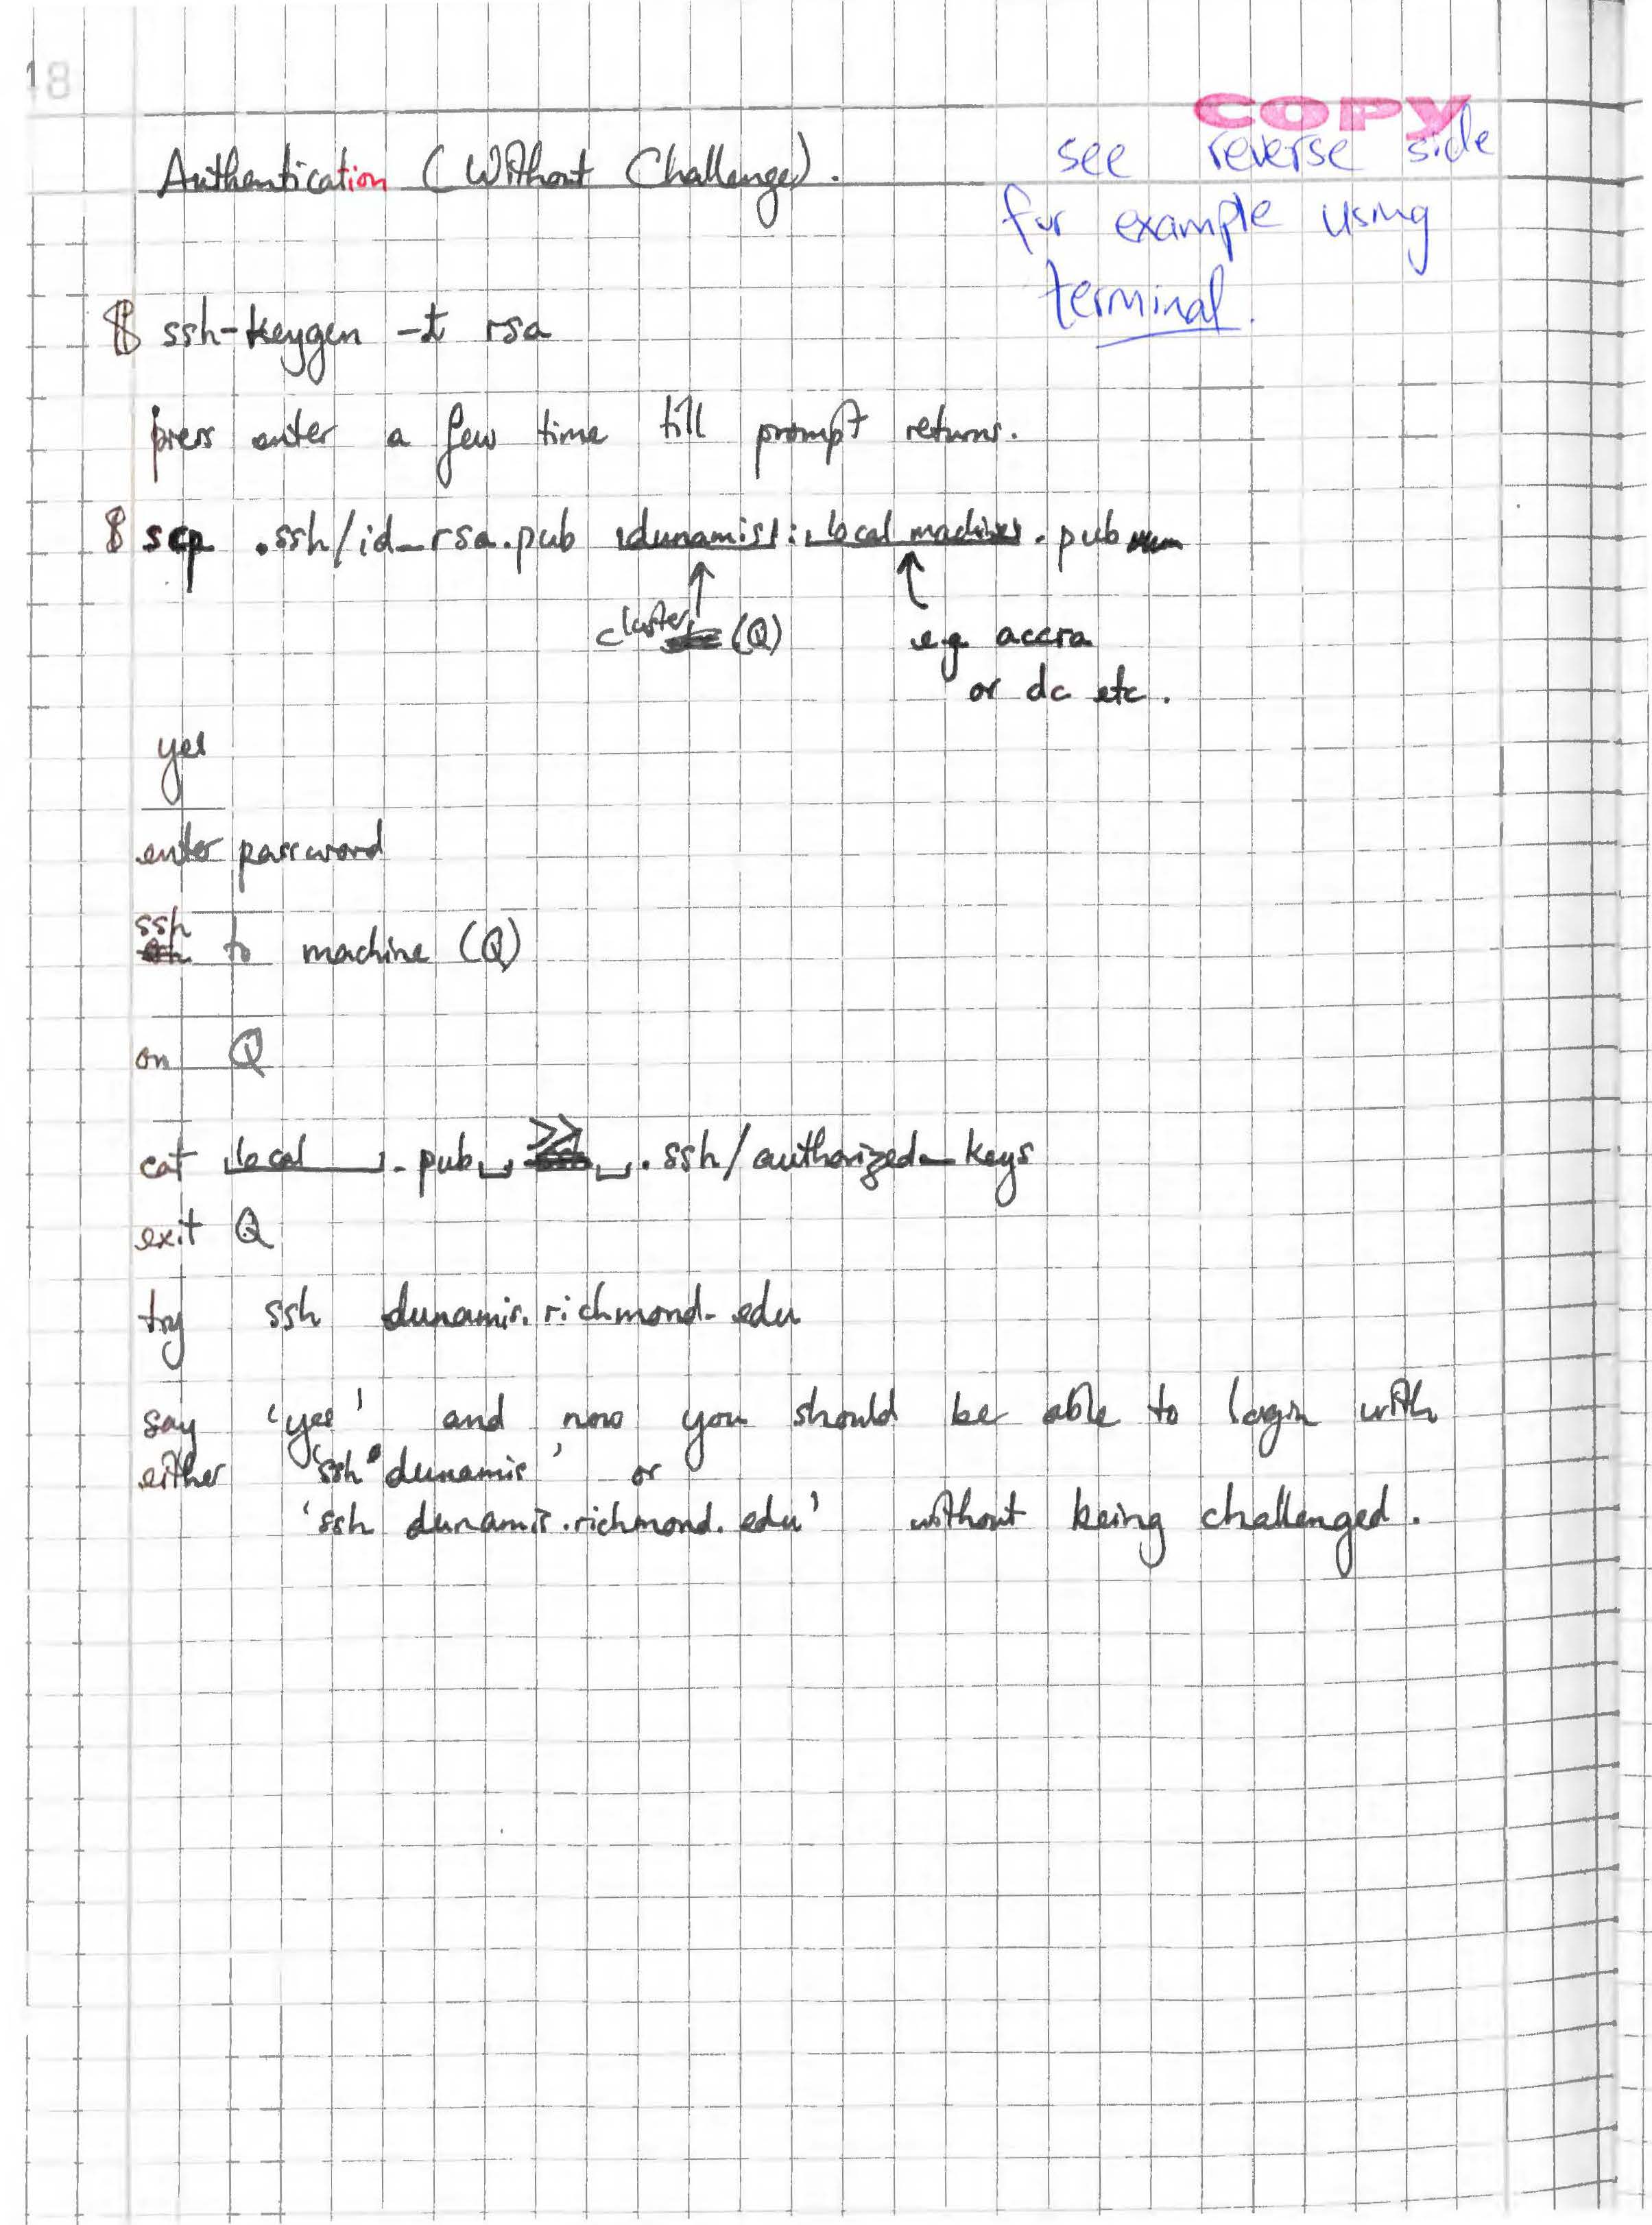 18
COPY
see reverse side
for example using
terminal.
Authentication (Without Challenge).
$ ssh-keygen -t rsa
press enter a few time till prompt returns.
$ scp .ssh/id_rsa.pub dunamis:local machine.pub
cluster (Q)
e.g accra
or dc etc.
yes
enter password
ssh to machine (Q)
on Q
cat local .pub >> .ssh/authorized_keys
exit Q
try ssh dunamis.richmond.edu
say 'yes' and now you should be able to login with
either 'ssh dunamis' or
'ssh dunamis.richmond.edu' without being challenged.